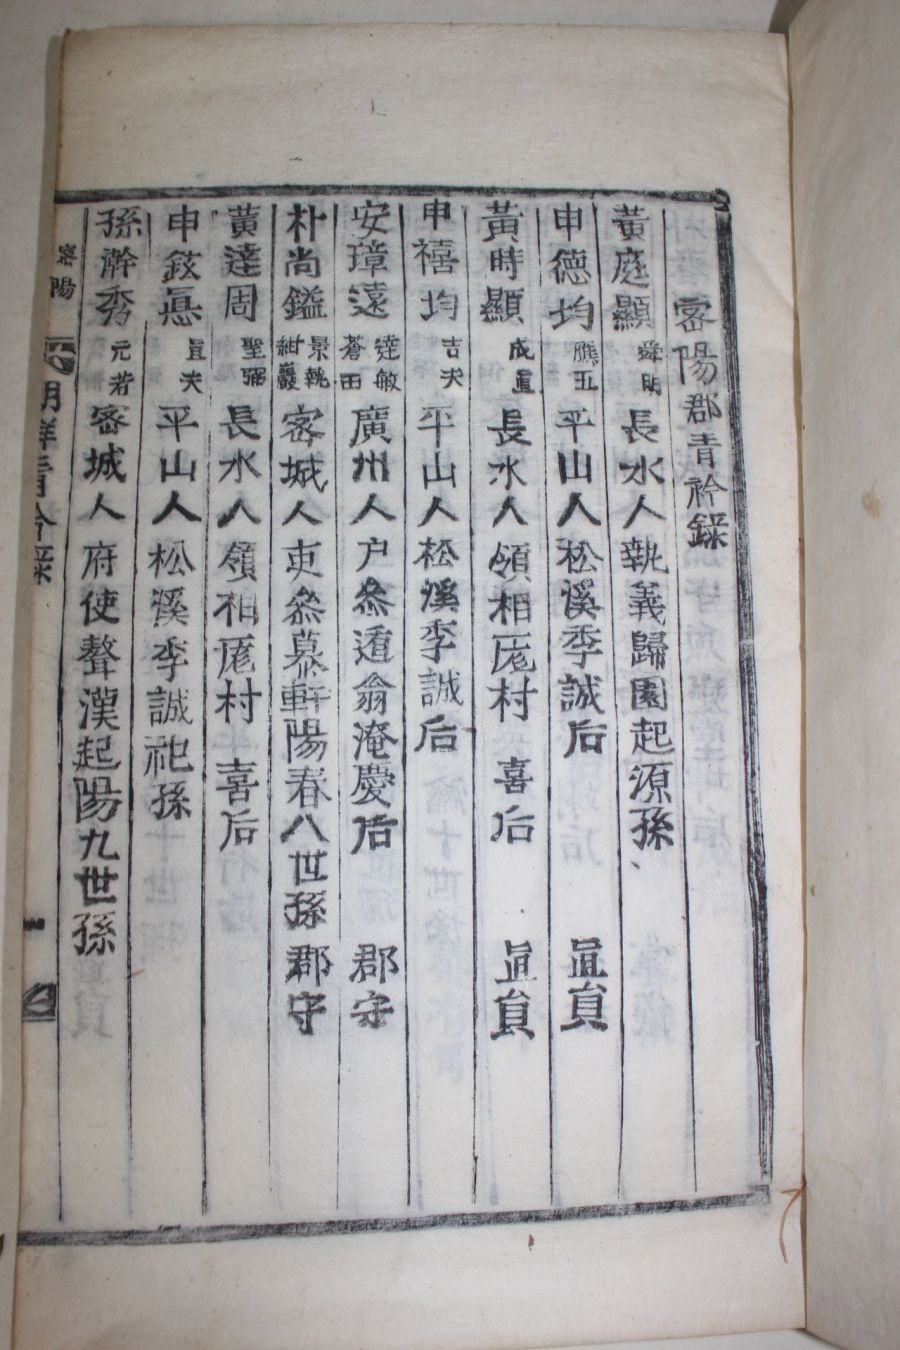 密陽郡青衿錄
黃庭顯 舜明 長水人 執義歸園起源孫
申德均 應五 平山人 松溪季誠后 直員
黃時顯 成直 長水人 領相厖村喜后 直員
申禧均 吉夫 平山人 松溪季誠后
安璋遠 達敏 蒼田 廣州人 户叅遁翁淹慶后 郡守
朴尚鎰 景執 紺巖 密城人 吏叅慕軒陽春八世孫 郡守
黃達周 聖弼 長水人 領相厖村喜后
申鉉 直夫 平山人 松溪季誠祀孫
孫瀚秀 元若 密城人 府使聱漢起陽九世孫
密陽
朝鮮青衿錄